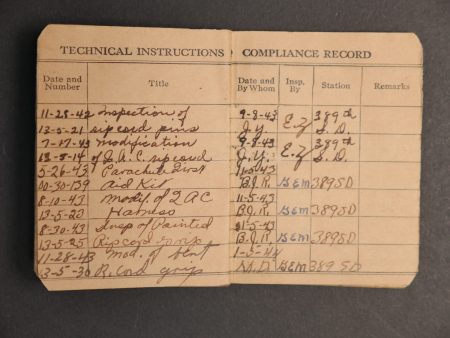 TECHNICAL INSTRUCTIONS COMPLIANCE RECORD
Date and Number Title Date and By Whom Insp. By Station Remarks
11-23-42 Inspection of 9-8-43 389th
13-5-21 ripcord pins J.Y. E.Z S.D.
7-17-43 modification 9-8-43 389th
13-5-14 of Q.A.C. ripcord E.Z S.D.
5-26-43 Parachute First 11-5-43
00-30-139 Aid Kit B.J.R. GEM 389SD
8-10-43 Modif. of QAC 11-5-43
13-5-23 Harness B.J.R. GEM 389SD
8-30-43 Insp of Painted 11-5-43
13-5-25 Ripcord Grip B.J.R. GEM 389SD
11-28-43 Mod. of bent 1-5-44
13-5-30 R. Cord grip M.D. GEM 389 SD